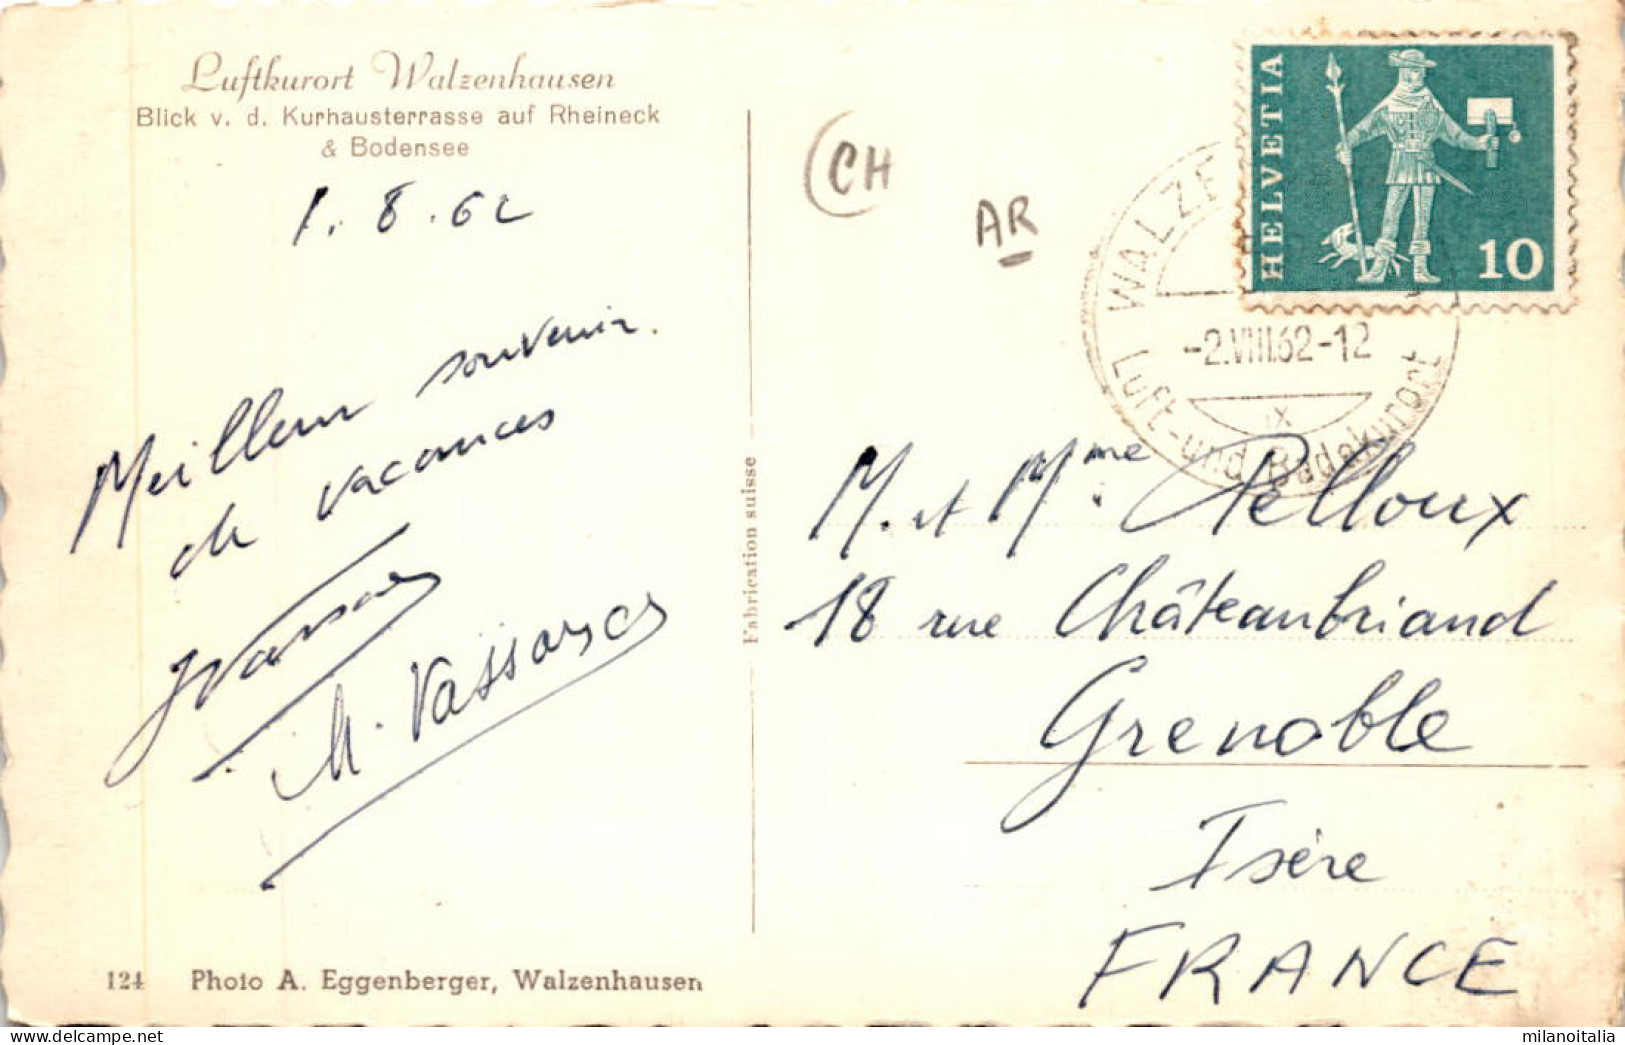 Luftkurort Walzenhausen
Blick v. d. Kurhausterrasse auf Rheineck
& Bodensee
1. 8. 62
Meilleur souvenir.
de vacances
M.
124 Photo A. Eggenberger, Walzenhausen
Fabrication suisse
CH
AR
HELVETIA
10
WALZE
-2.VIII.62-12
IX
Luft- und Badekurort
M. et Mme Pelloux
18 rue Châteaubriand
Grenoble
Isère
FRANCE
milanoitalia